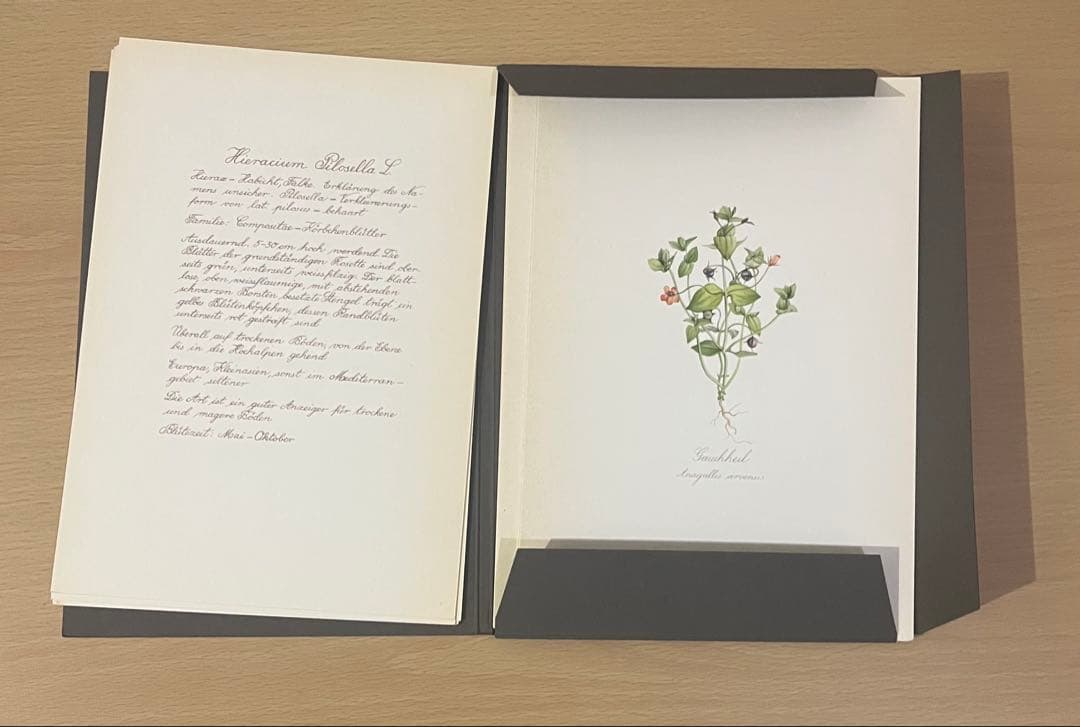 Hieracium Pilosella L.
Hierax = Habicht, Falke. Erklärung des Na-
mens unsicher. Pilosella = Verkleinerungs-
form von lat. pilosus = behaart
Familie: Compositae = Körbchenblütler
Ausdauernd. 5-30 cm hoch werdend. Die
Blätter der grundständigen Rosette sind ober-
seits grün, unterseits weissfilzig. Der blatt-
lose, oben weissflaumige, mit abstehenden
schwarzen Borsten besetzte Stengel trägt ein
gelbes Blütenköpfchen, dessen Randblüten
unterseits rot gestreift sind
Überall auf trockenen Böden, von der Ebene
bis in die Hochalpen gehend
Europa, Kleinasien, sonst im Mediterran-
gebiet seltener
Die Art ist ein guter Anzeiger für trockene
und magere Böden
Blütezeit: Mai - Oktober
Gauchheil
Anagallis arvensis